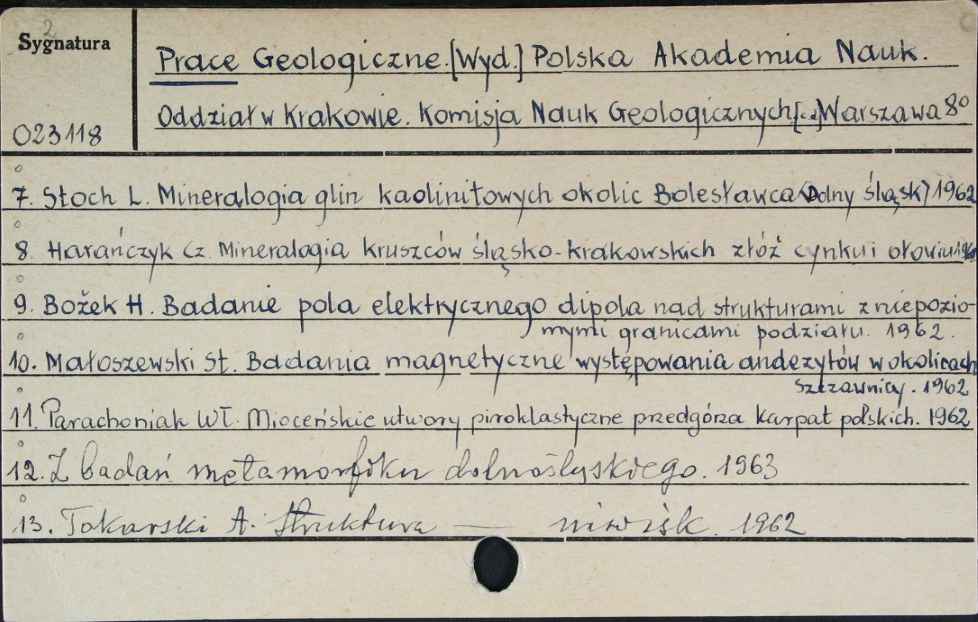 2
Sygnatura
Prace Geologiczne. [Wyd.] Polska Akademia Nauk.
023118
Oddział w Krakowie. Komisja Nauk Geologicznych Warszawa 8°
7. Stoch L. Mineralogia glin kaolinitowych okolic Bolesławca (Dolny Śląsk) 1962
8. Harańczyk Cz. Mineralogia kruszców śląsko-krakowskich złóż cynku i ołowiu
9. Božek H. Badanie pola elektrycznego dipola nad strukturami z niepozio
mymi granicami podziału. 1962.
10. Małoszewski St. Badania magnetyczne występowania andezytów w okolicach
Szczawnicy. 1962
11. Parachoniak Wł. Mioceńskie utwory piroklastyczne przedgórza Karpat polskich. 1962
12. Z badań metamorfiku dolnośląskiego. 1963
13. Tokarski A. Struktura — niwisk. 1962